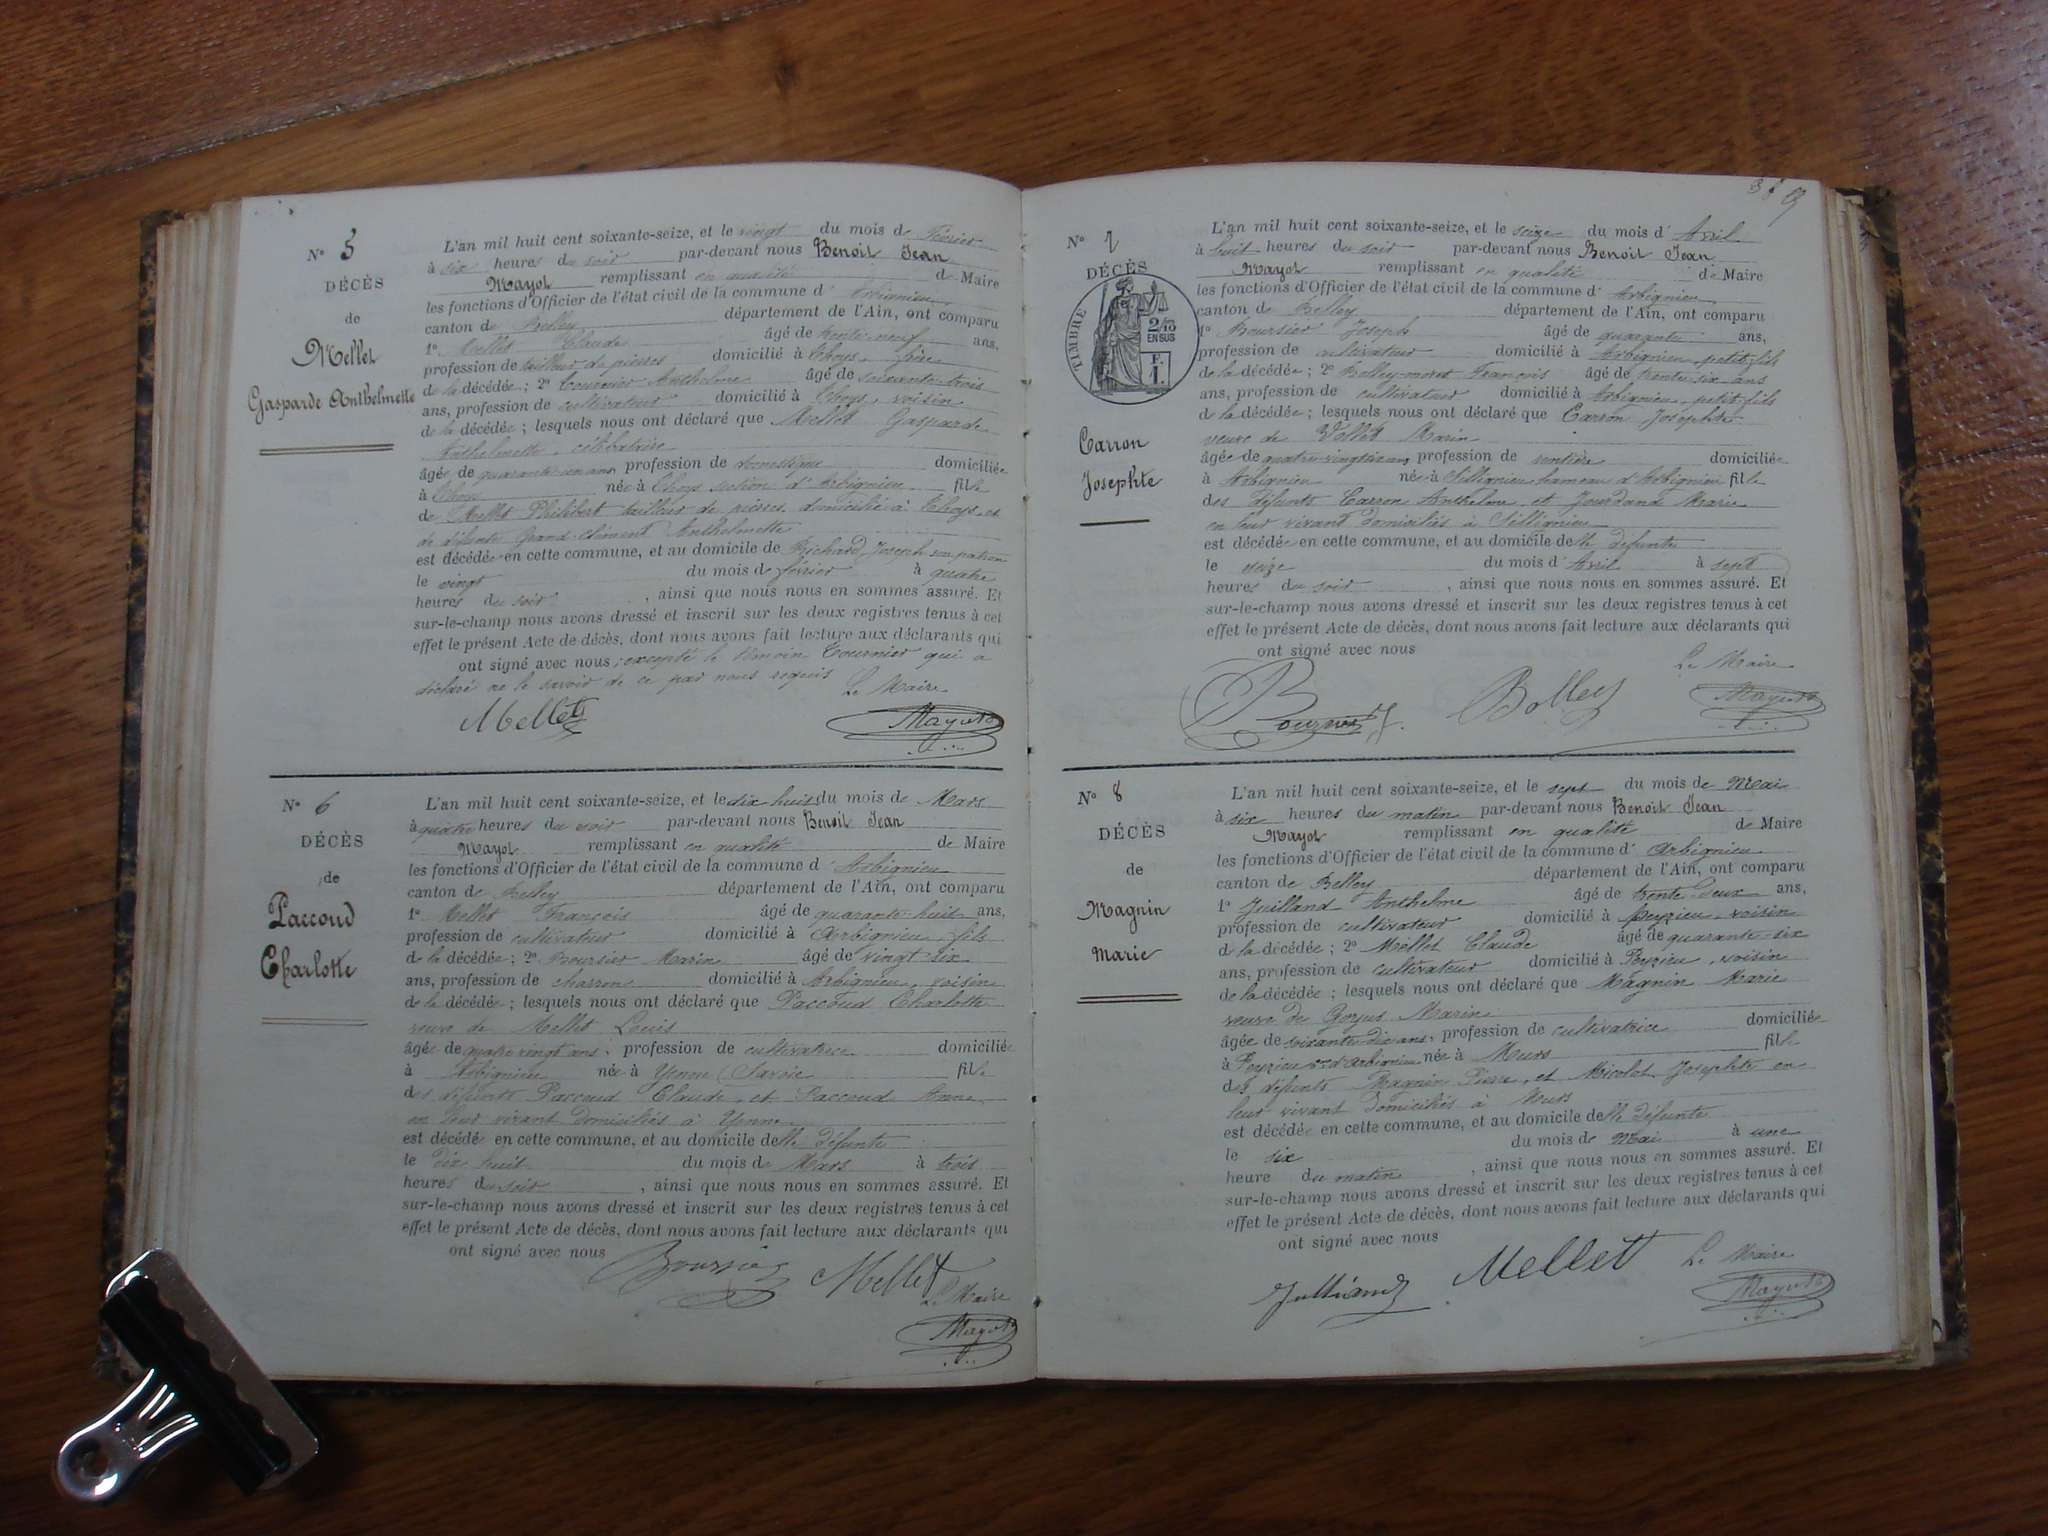 N° 5
DÉCÈS
de
Mellet
Gasparde Anthelmette
L'an mil huit cent soixante-seize, et le vingt du mois de Février
à six heures du soir par-devant nous Benoit Jean
Mayot remplissant en qualité de Maire
les fonctions d'Officier de l'état civil de la commune d' Arbignieu
canton de Belley département de l'Ain, ont comparu
1° Mellet Claude âgé de trente-neuf ans,
profession de tailleur de pierres domicilié à Thoys, frère
de la décédée ; 2° Tournier Anthelme âgé de soixante-trois
ans, profession de cultivateur domicilié à Thoys, voisin
de la décédée ; lesquels nous ont déclaré que Mellet Gasparde
Anthelmette, célibataire
âgée de quarante-un ans profession de domestique domiciliée
à Thoys née à Thoys section d'Arbignieu fille
de Mellet Philibert tailleur de pierres domicilié à Thoys, et
de défunte Grand-Clément Anthelmette
est décédée en cette commune, et au domicile de Richard Joseph son patron
le vingt du mois de février à quatre
heures du soir , ainsi que nous nous en sommes assuré. Et
sur-le-champ nous avons dressé et inscrit sur les deux registres tenus à cet
effet le présent Acte de décès, dont nous avons fait lecture aux déclarants qui
ont signé avec nous, excepté le témoin Tournier qui a
déclaré ne le savoir de ce par nous requis Le Maire
Mellet Mayot
N° 6
DÉCÈS
de
Paccoud
Charlotte
L'an mil huit cent soixante-seize, et le dix huit du mois de Mars
à quatre heures du soir par-devant nous Benoit Jean
Mayot remplissant en qualité de Maire
les fonctions d'Officier de l'état civil de la commune d' Arbignieu
canton de Belley département de l'Ain, ont comparu
1° Mellet François âgé de quarante-huit ans,
profession de cultivateur domicilié à Arbignieu fils
de la décédée ; 2° Boursier Marin âgé de vingt-six
ans, profession de charron domicilié à Arbignieu, voisin
de la décédée ; lesquels nous ont déclaré que Paccoud Charlotte
veuve de Mellet Louis
âgée de quatre vingt ans, profession de cultivatrice domiciliée
à Arbignieu née à Yenne (Savoie fille
des défunts Paccoud Claude, et Paccoud Anne,
en leur vivant domiciliés à Yenne
est décédée en cette commune, et au domicile de lle défunte
le dix huit du mois de Mars à trois
heures du soir , ainsi que nous nous en sommes assuré. Et
sur-le-champ nous avons dressé et inscrit sur les deux registres tenus à cet
effet le présent Acte de décès, dont nous avons fait lecture aux déclarants qui
ont signé avec nous
Boursier Mellet
Le Maire
Mayot
N° 7
DÉCÈS
TIMBRE
2/10
EN SUS
F.
1.
Carron
Josephte
L'an mil huit cent soixante-seize, et le seize du mois d' Avril
à huit heures du soir par-devant nous Benoit Jean
Mayot remplissant en qualité de Maire
les fonctions d'Officier de l'état civil de la commune d' Arbignieu
canton de Belley département de l'Ain, ont comparu
1° Boursier Joseph âgé de quarante ans,
profession de cultivateur domicilié à Arbignieu, petit-fils
de la décédée ; 2° Bolley-moret François âgé de trente-six ans
ans, profession de cultivateur domicilié à Arbignieu, petit-fils
de la décédée ; lesquels nous ont déclaré que Carron Josephte
veuve de Vollet Marin
âgée de profession de rentière domiciliée
à Arbignieu née à Sillignieu hameau d'Arbignieu fille
des défunts Carron Anthelme et Jourdand Marie
en leur vivant domiciliés à Sillignieu
est décédée en cette commune, et au domicile de lle défunte
le seize du mois d' Avril à sept
heures du soir , ainsi que nous nous en sommes assuré. Et
sur-le-champ nous avons dressé et inscrit sur les deux registres tenus à cet
effet le présent Acte de décès, dont nous avons fait lecture aux déclarants qui
ont signé avec nous
Le Maire
Bolley Mayot
N° 8
DÉCÈS
de
Magnin
Marie
L'an mil huit cent soixante-seize, et le sept du mois de Mai
à six heures du matin par-devant nous Benoit Jean
Mayot remplissant en qualité de Maire
les fonctions d'Officier de l'état civil de la commune d' Arbignieu
canton de Belley département de l'Ain, ont comparu
1° Juilland Anthelme âgé de trente-deux ans,
profession de cultivateur domicilié à Peyzieu, voisin
de la décédée ; 2° Mellet Claude âgé de quarante-six
ans, profession de cultivateur domicilié à Peyzieu, voisin
de la décédée ; lesquels nous ont déclaré que Magnin Marie
veuve de Goyus Marin
âgée de soixante-dix ans, profession de cultivatrice domiciliée
à Peyzieu on d'Arbignieu née à Murs fille
des défunts Magnin Pierre, et Micolet Josephte en
leur vivant domiciliés à Murs
est décédée en cette commune, et au domicile de lle défunte
le six du mois de Mai à une
heure du matin , ainsi que nous nous en sommes assuré. Et
sur-le-champ nous avons dressé et inscrit sur les deux registres tenus à cet
effet le présent Acte de décès, dont nous avons fait lecture aux déclarants qui
ont signé avec nous
Julliand Mellet Le Maire
Mayot